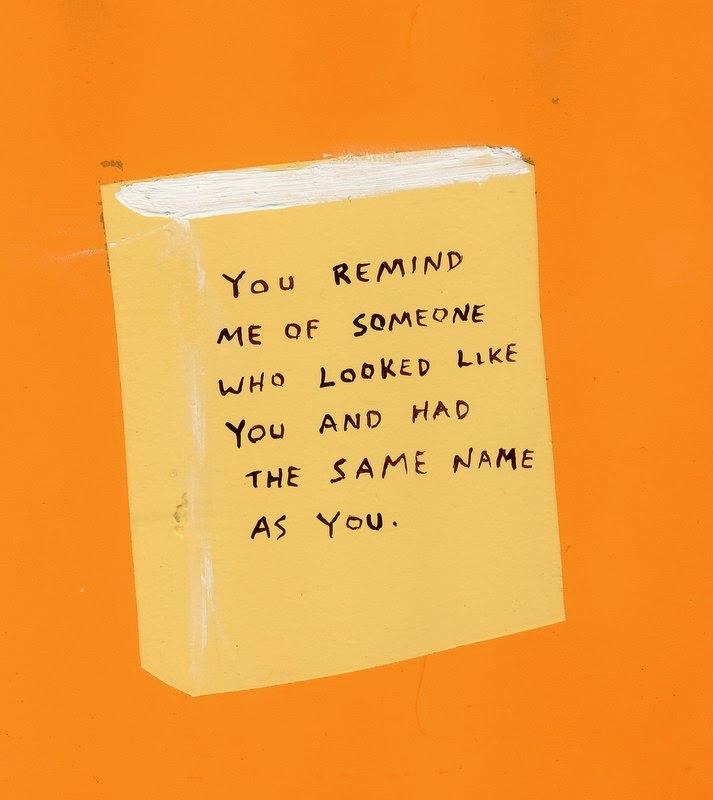 YOU REMIND
ME OF SOMEONE
WHO LOOKED LIKE
YOU AND HAD
THE SAME NAME
AS YOU.